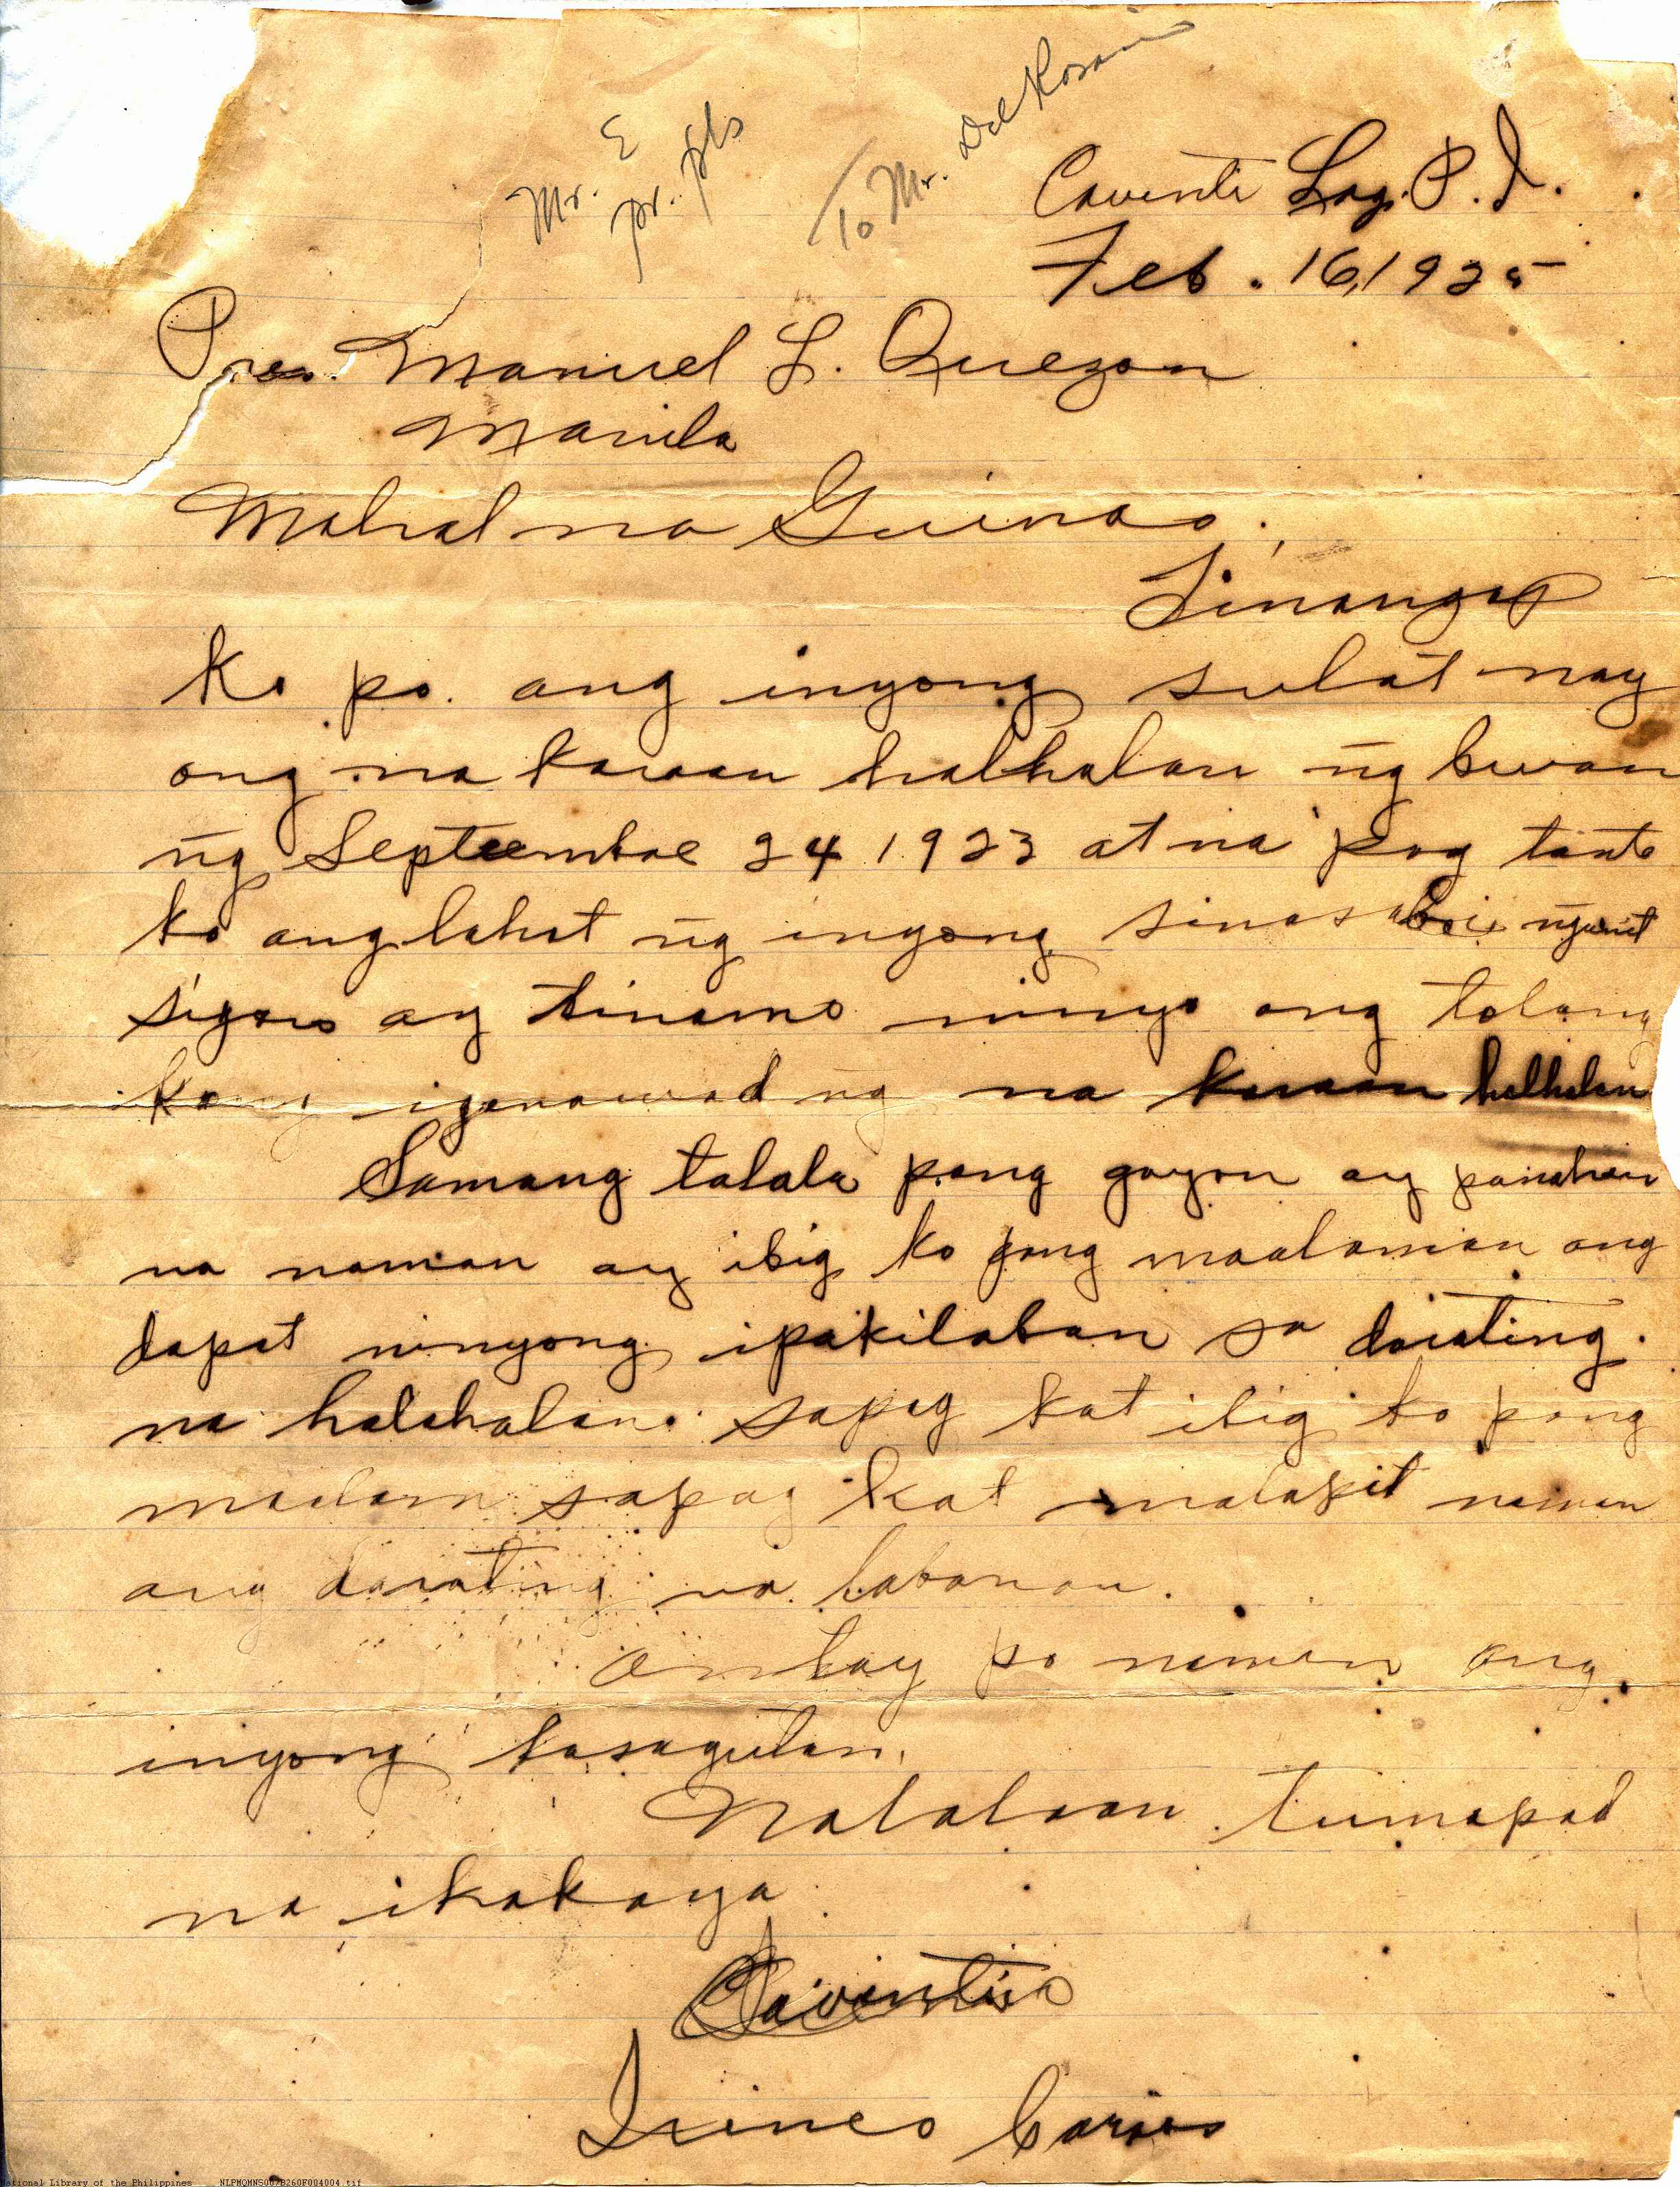 Mr. E
pr. pls
To Mr. Del Rosario
Cavinti Lag. P. I.
Feb. 16, 1925
Pres. Manuel L. Quezon
Manila
Mahal na Guinoo;
Tinangap
ko po. ang inyong sulat nay
ong na karaan halhalan n̄g bwan
n̄g Septeembre 24 1923 at na pag tanto
ko ang lahat n̄g inyong sinasabi n̄gunit
siguro ay tinamo ninyo ang tolong
kong iganawad ng na karaan halhalan
Samang talala pong gayon ay panahon
na naman ay ibig ko pong maalaman ang
dapat ninyong ipakilaban sa darating.
na halahalan. sapag kat ibig ko pong
maalam sapag kat malapit naman
ang darating na labanan.
antay po naman ang
inyong kasagutan.
Nalalaan tumapad
na ikakaya
Irineo